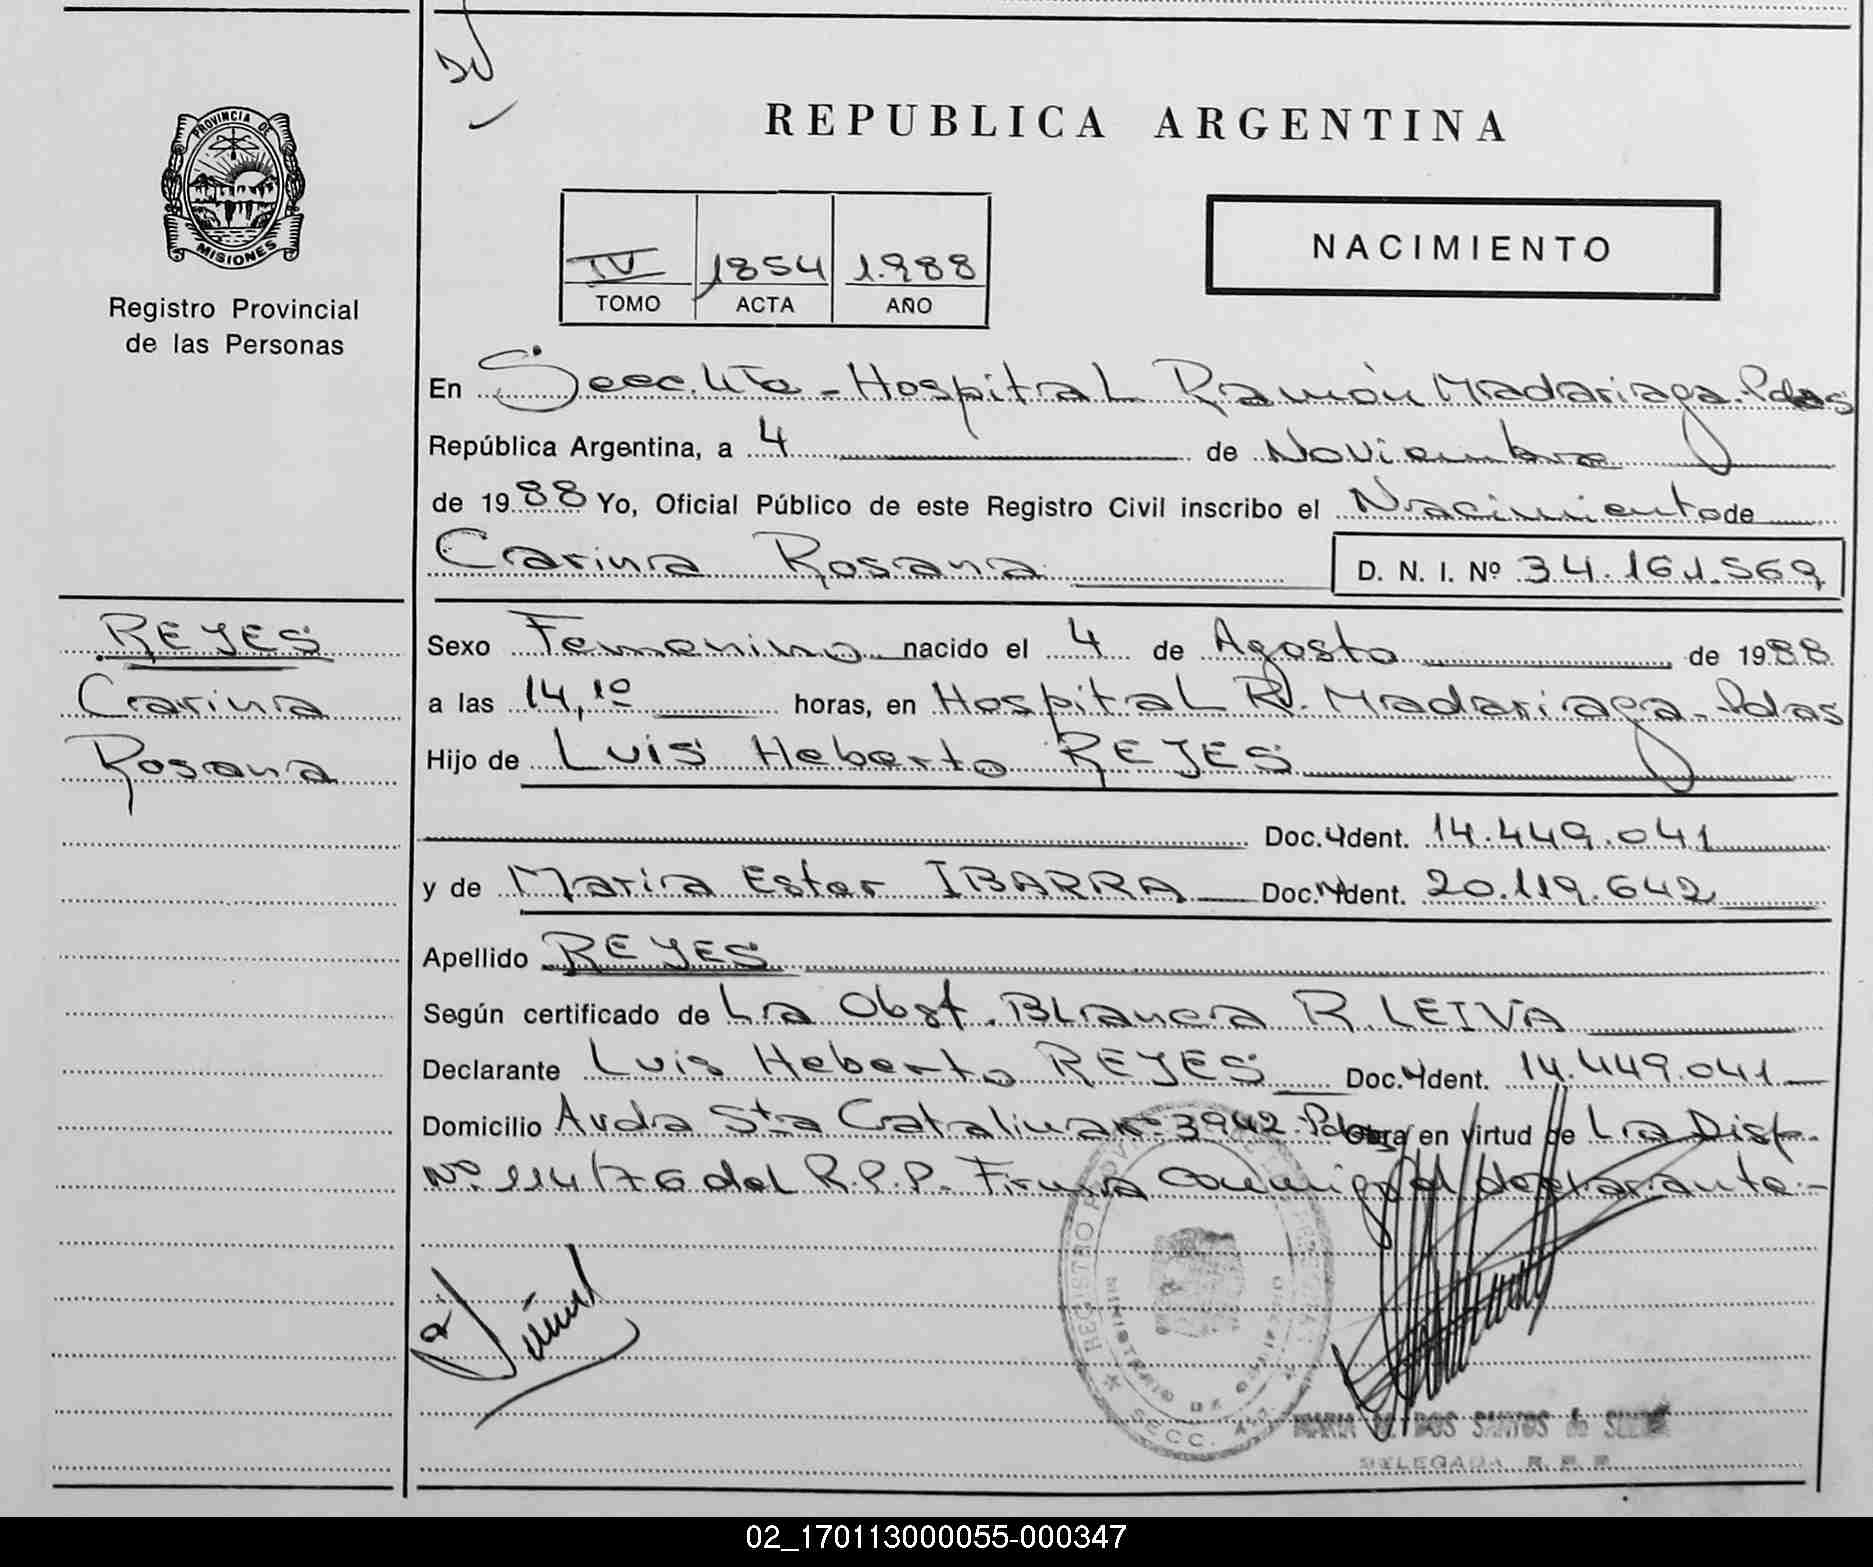 REPUBLICA ARGENTINA
PROVINCIA DE
MISIONES
Registro Provincial
de las Personas
NACIMIENTO
IV 1854 1.988
TOMO ACTA AÑO
En Secc. 4ta - Hospital Ramón Madariaga. Pdas
República Argentina, a 4 de Noviembre
de 1988 Yo, Oficial Público de este Registro Civil inscribo el Nacimiento de
Carina Rosana D. N. I. Nº 34.161.569
REYES
Carina
Rosana
Sexo Femenino nacido el 4 de Agosto de 1988
a las 14,10 horas, en Hospital R. Madariaga - Pdas
Hijo de Luis Heberto REYES
Doc. Ident. 14.449.041
y de Maria Ester IBARRA Doc. Ident. 20.119.642
Apellido REYES
Según certificado de La Obst. Blanca R. LEIVA
Declarante Luis Heberto REYES Doc. Ident. 14.449.041
Domicilio Avda Sta Catalina nº 3942 - Pdas Obra en virtud de La Disp.
Nº 114/76 del R.P.P. Firma conmigo el declarante.-
REGISTRO
MINISTERIO DE GOBIERNO
SECC. 4ta
MARIA DOS SANTOS de
DELEGADA R. P. P.
02_170113000055-000347